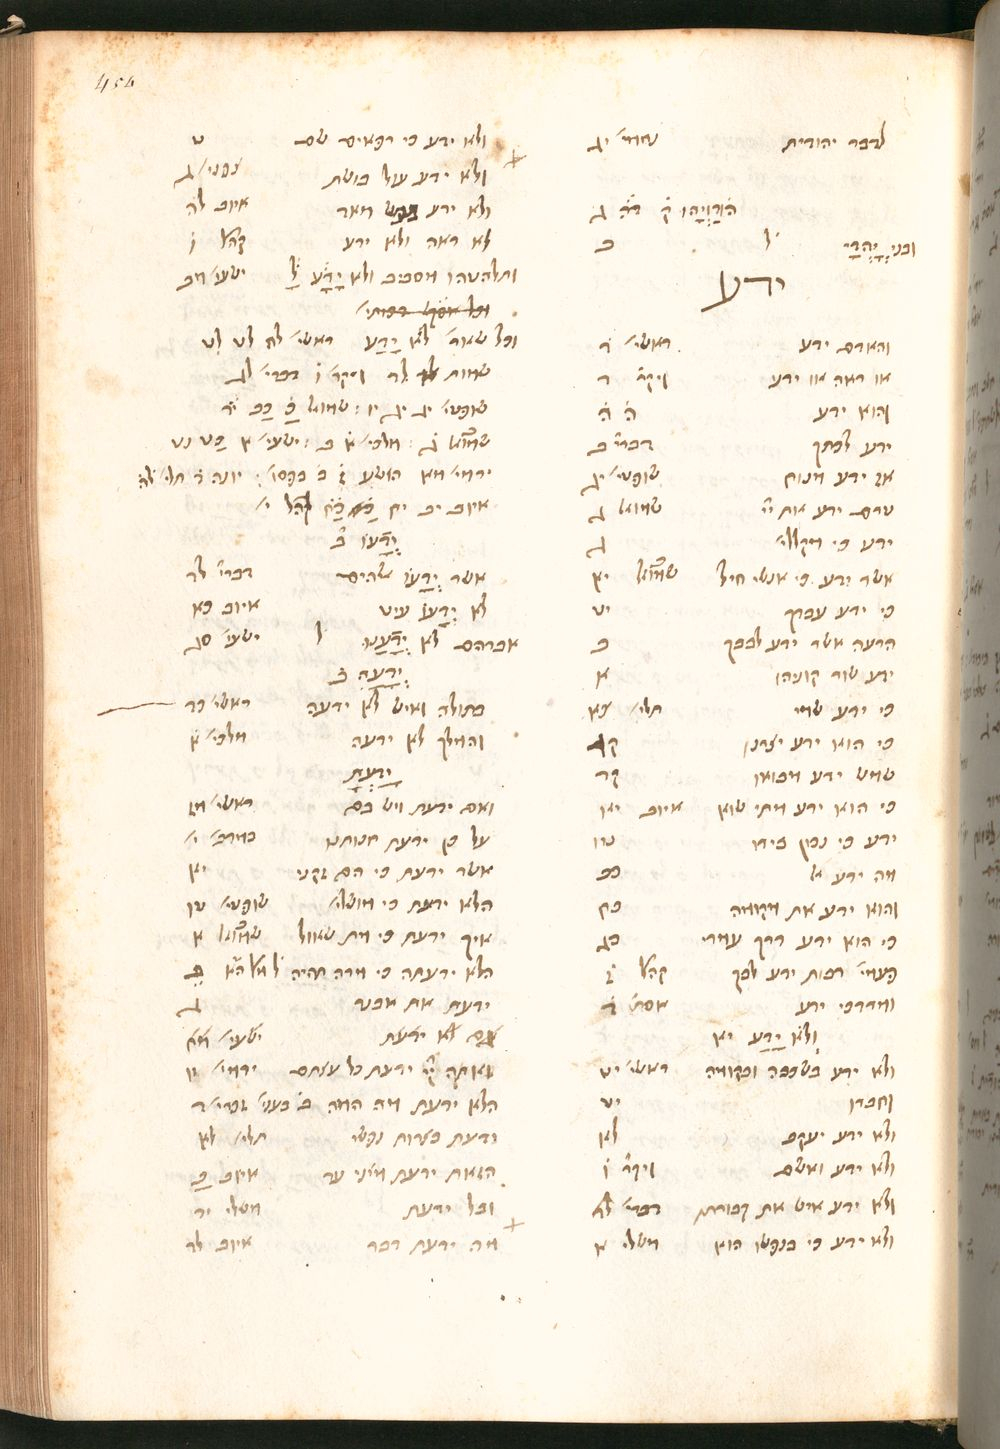 454
לדבר יהודית נחמי׳ יג
הורויהו ק׳ דה ג
ובני יהדי ל׳ ב
ידע
והאדם ידע ראשי׳ ד
או ראה או ידע ויקר׳ ה
והוא ידע ה ה
ידע לכתך דברי׳ ב
אז ידע מנוח שופטי׳ יג
טרם ידע את יי׳ שמואל ג
ידע כי מקללי׳ ג
אשר ידע כי אנשי חיל שמואל יא
כי ידע עבדך יט
הרעה אשר ידע לבבך ב
ידע שור קונהו א
כי ידע שמי תלי׳ צא
כי הוא ידע יצרנו קג
שמש ידע מבואו קד
כי הוא ידע מתי שוא איוב יא
ידע כי נכון בידו טו
מה ידע אל כב
והוא ידע את מקומה כח
כי הוא ידע דרך עמדי כג
פעמי׳ רבות ידע לבך קהל׳ ז
ומרדכי ידע אסת׳ ד
ולא ידע יא
ולא ידע בשכבה ובקומה ראשי׳ יט
וחברו יט
ולא ידע יעקב לא
ולא ידע ואשם ויקר׳ ו
ולא ידע איש את קבורתו דברי׳ לד
ולא ידע כי בנפשו הוא משלי ז
ולא ידע כי רפאים שם ט
ולא ידע עול בושת צפני׳ ג
ולא ידע בפש מאד איוב לה
לא ראה ולא ידע קהל׳ ו
ותלהטהו מסביב ולא ידע ל׳ ישעי׳ מב
וכל שאר׳ לא ידע ראשי׳ לח לט לט
שמות לד ויקר׳ ו דברי׳ לג
ידעו ב
אשר ידעו אלהים דברי׳ לב
לא ידעו עיט איוב כא
אברהם לא ידענו ל׳ ישעי׳ סג
ידעה ב
בתולה ואיש לא ידעה ראשי׳ כד
והמלך לא ידעה מלכי׳ א
ידעת
ואם ידעת ויש בם ראשי׳ מז
על כן ידעת חנותנו במדב׳ י
אשר ידעת כי הם זקני יא
הלא ידעת כי מושלי׳ שופטי׳ טו
איך ידעת כי מת שאול שמואל א
הלא ידעתה כי מרה תהיה ל׳ מל׳ הא ב
ידעת את אבנר ג
גם לא ידעת ישעי׳ מח
ואתה יי׳ ידעת כל עצתם ירמי׳ יח
הלא ידעת מה המה ב׳ בעני׳ זכרי׳ ד
ידעת בצרות נפשי תלי׳ לא
הזאת ידעת מיני עד איוב כ
ובל ידעת משלי יד
מה ידעת דבר איוב לד